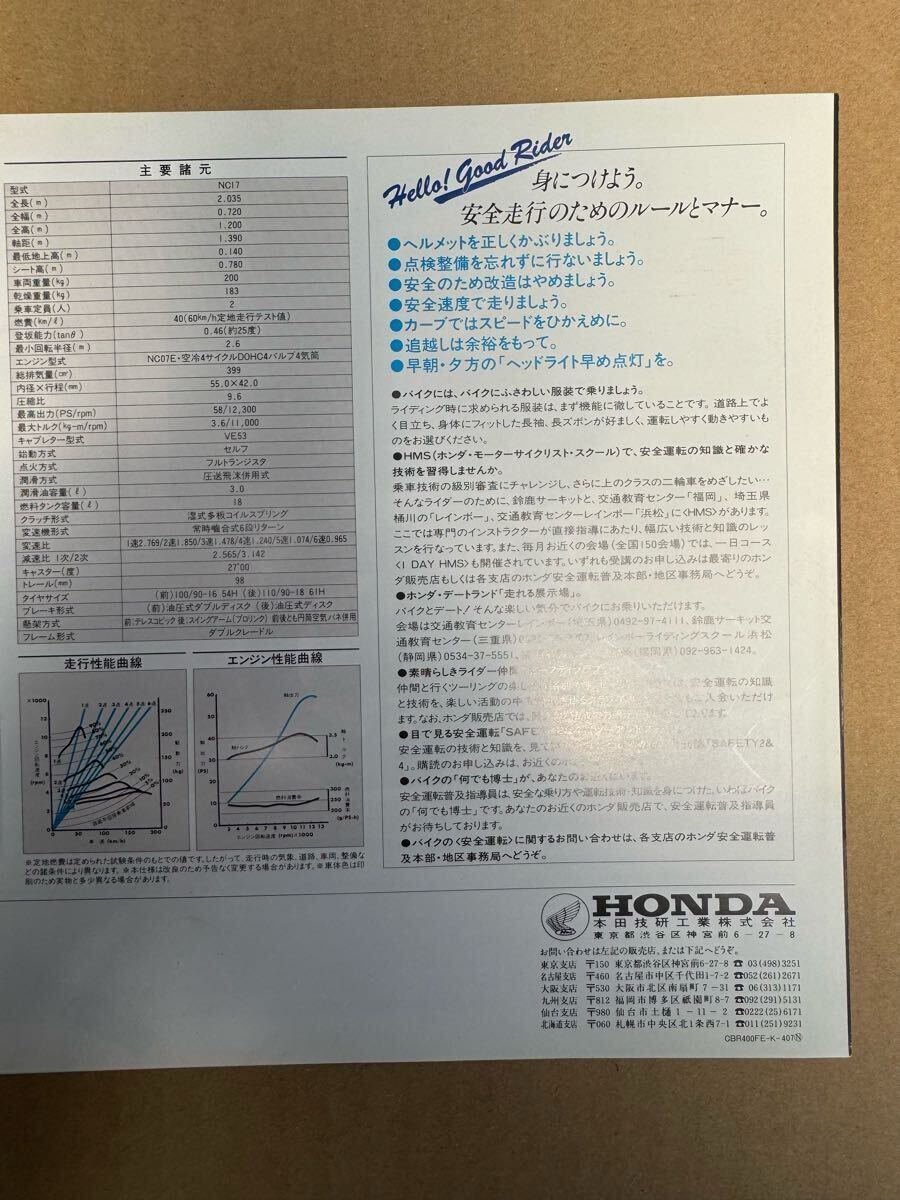 主要諸元
型式 NC17
全長(m) 2.035
全幅(m) 0.720
全高(m) 1.200
軸距(m) 1.390
最低地上高(m) 0.140
シート高(m) 0.780
車両重量(kg) 200
乾燥重量(kg) 183
乗車定員(人) 2
燃費(km/ℓ) 40(60km/h定地走行テスト値)
登坂能力(tanθ) 0.46(約25度)
最小回転半径(m) 2.6
エンジン型式 NC07E・空冷4サイクルDOHC4バルブ4気筒
総排気量(cm³) 399
内径×行程(mm) 55.0×42.0
圧縮比 9.6
最高出力(PS/rpm) 58/12,300
最大トルク(kg-m/rpm) 3.6/11,000
キャブレター型式 VE53
始動方式 セルフ
点火方式 フルトランジスタ
潤滑方式 圧送飛沫併用式
潤滑油容量(ℓ) 3.0
燃料タンク容量(ℓ) 18
クラッチ形式 湿式多板コイルスプリング
変速機形式 常時噛合式6段リターン
変速比 1速2.769/2速1.850/3速1.478/4速1.240/5速1.074/6速0.965
減速比 1次/2次 2.565/3.142
キャスター(度) 27°00′
トレール(mm) 98
タイヤサイズ (前)100/90-16 54H (後)110/90-18 61H
ブレーキ形式 (前)油圧式ダブルディスク (後)油圧式ディスク
懸架方式 前:テレスコピック 後:スイングアーム(プロリンク) 前後とも円筒空気バネ併用
フレーム形式 ダブルクレードル
走行性能曲線
エンジン性能曲線
※定地燃費は定められた試験条件のもとでの値です。したがって、走行時の気象、道路、車両、整備な
どの諸条件により異なります。※本仕様は改良のため予告なく変更する場合があります。※車体色は印
刷のため実物と多少異なる場合があります。
Hello! Good Rider
身につけよう。
安全走行のためのルールとマナー。
●ヘルメットを正しくかぶりましょう。
●点検整備を忘れずに行ないましょう。
●安全のため改造はやめましょう。
●安全速度で走りましょう。
●カーブではスピードをひかえめに。
●追越しは余裕をもって。
●早朝・夕方の「ヘッドライト早め点灯」を。
●バイクには、バイクにふさわしい服装で乗りましょう。
ライディング時に求められる服装は、まず機能に徹していることです。道路上でよ
く目立ち、身体にフィットした長袖、長ズボンが好ましく、運転しやすく動きやすいも
のをお選びください。
●HMS(ホンダ・モーターサイクリスト・スクール)で、安全運転の知識と確かな
技術を習得しませんか。
乗車技術の級別審査にチャレンジし、さらに上のクラスの二輪車をめざしたい…
そんなライダーのために、鈴鹿サーキットと、交通教育センター「福岡」、埼玉県
桶川の「レインボー」、交通教育センターレインボー「浜松」に〈HMS〉があります。
ここでは専門のインストラクターが直接指導にあたり、幅広い技術と知識のレッ
スンを行なっています。また、毎月お近くの会場(全国150会場)では、一日コース
〈1 DAY HMS〉も開催されています。いずれも受講のお申し込みは最寄りのホン
ダ販売店もしくは各支店のホンダ安全運転普及本部・地区事務局へどうぞ。
●ホンダ・デートランド「走れる展示場」。
バイクとデート!そんな楽しい気分でバイクにお乗りいただけます。
会場は交通教育センターレインボー(埼玉県)0492-97-4111、鈴鹿サーキット交
通教育センター(三重県) レインボーライディングスクール浜松
(静岡県)0534-37-5551、 (福岡県)092-963-1424。
●素晴らしきライダー仲間 安全運転の知識
仲間と行くツーリングの楽し
と技術を、楽しい活動の中 ご入会いただけ
ます。なお、ホンダ販売店では、 ております。
●目で見る安全運転「SAFE
安全運転の技術と知識を、見て 「SAFETY2&
4」。購読のお申し込みは、お近くのホ
●バイクの「何でも博士」が、あなたのお近くにいます。
安全運転普及指導員は、安全な乗り方や運転技術・知識を身につけた、いわばバイク
の「何でも博士」です。あなたのお近くのホンダ販売店で、安全運転普及指導員
がお待ちしております。
●バイクの〈安全運転〉に関するお問い合わせは、各支店のホンダ安全運転普
及本部・地区事務局へどうぞ。
HONDA
本田技研工業株式会社
東京都渋谷区神宮前6-27-8
お問い合わせは左記の販売店、または下記へどうぞ。
東京支店 〒150 東京都渋谷区神宮前6-27-8 ☎03(498)3251
名古屋支店 〒460 名古屋市中区千代田1-7-2 ☎052(261)2671
大阪支店 〒530 大阪市北区南扇町7-31 ☎06(313)1171
九州支店 〒812 福岡市博多区祇園町8-7 ☎092(291)5131
仙台支店 〒980 仙台市土樋1-11-2 ☎0222(25)6171
北海道支店 〒060 札幌市中央区北1条西7-1 ☎011(251)9231
CBR400FE-K-407Ⓝ